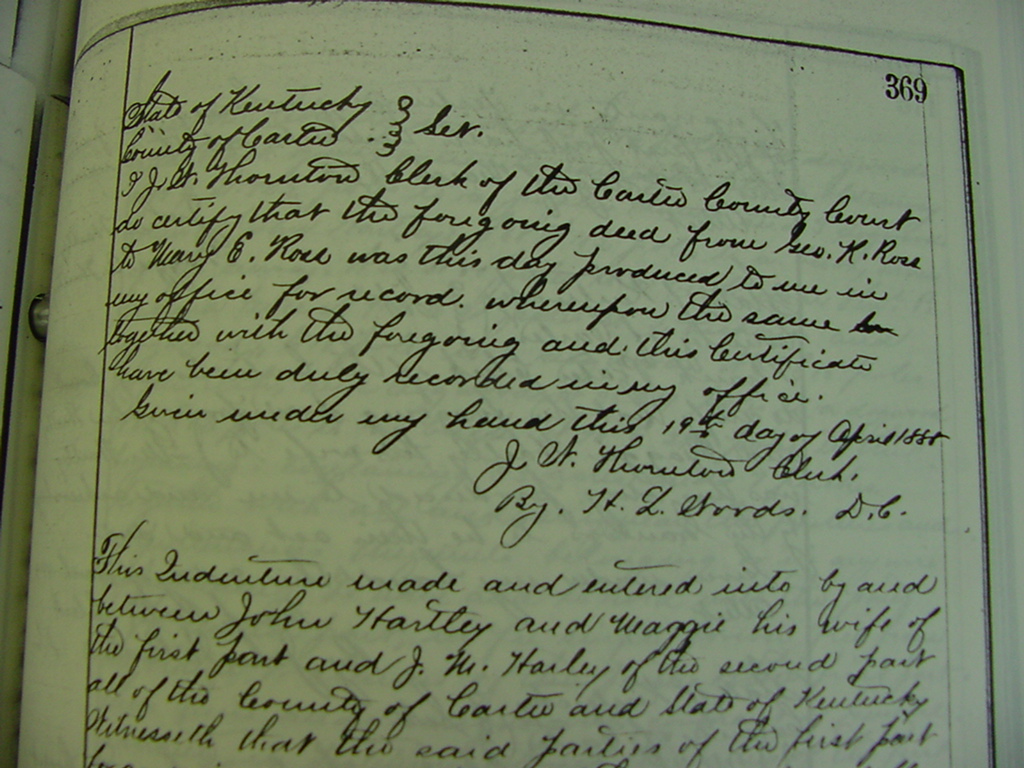 369
State of Kentucky
County of Carter } Sct.
I J. W. Thornton Clerk of the Carter County Court
do certify that the foregoing deed from Geo. K. Ross
to Mary E. Ross was this day produced to me in
my office for record. whereupon the same
together with the foregoing and this Certificate
have been duly recorded in my office.
Given under my hand this 19th day of April 188
J. W. Thornton Clerk.
By. H. L. Woods. D.C.
This Indenture made and entered into by and
between John Hartley and Maggie his wife of
the first part and J. M. Harley of the second part
all of the County of Carter and State of Kentucky
Witnesseth that the said parties of the first part